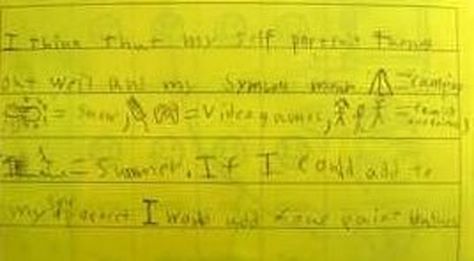 I think that my self portrait turned
out well and my symbols mean = camping
= snow, = Videogames, =
= Summer. If I could add to
my self portrait I would add some paint